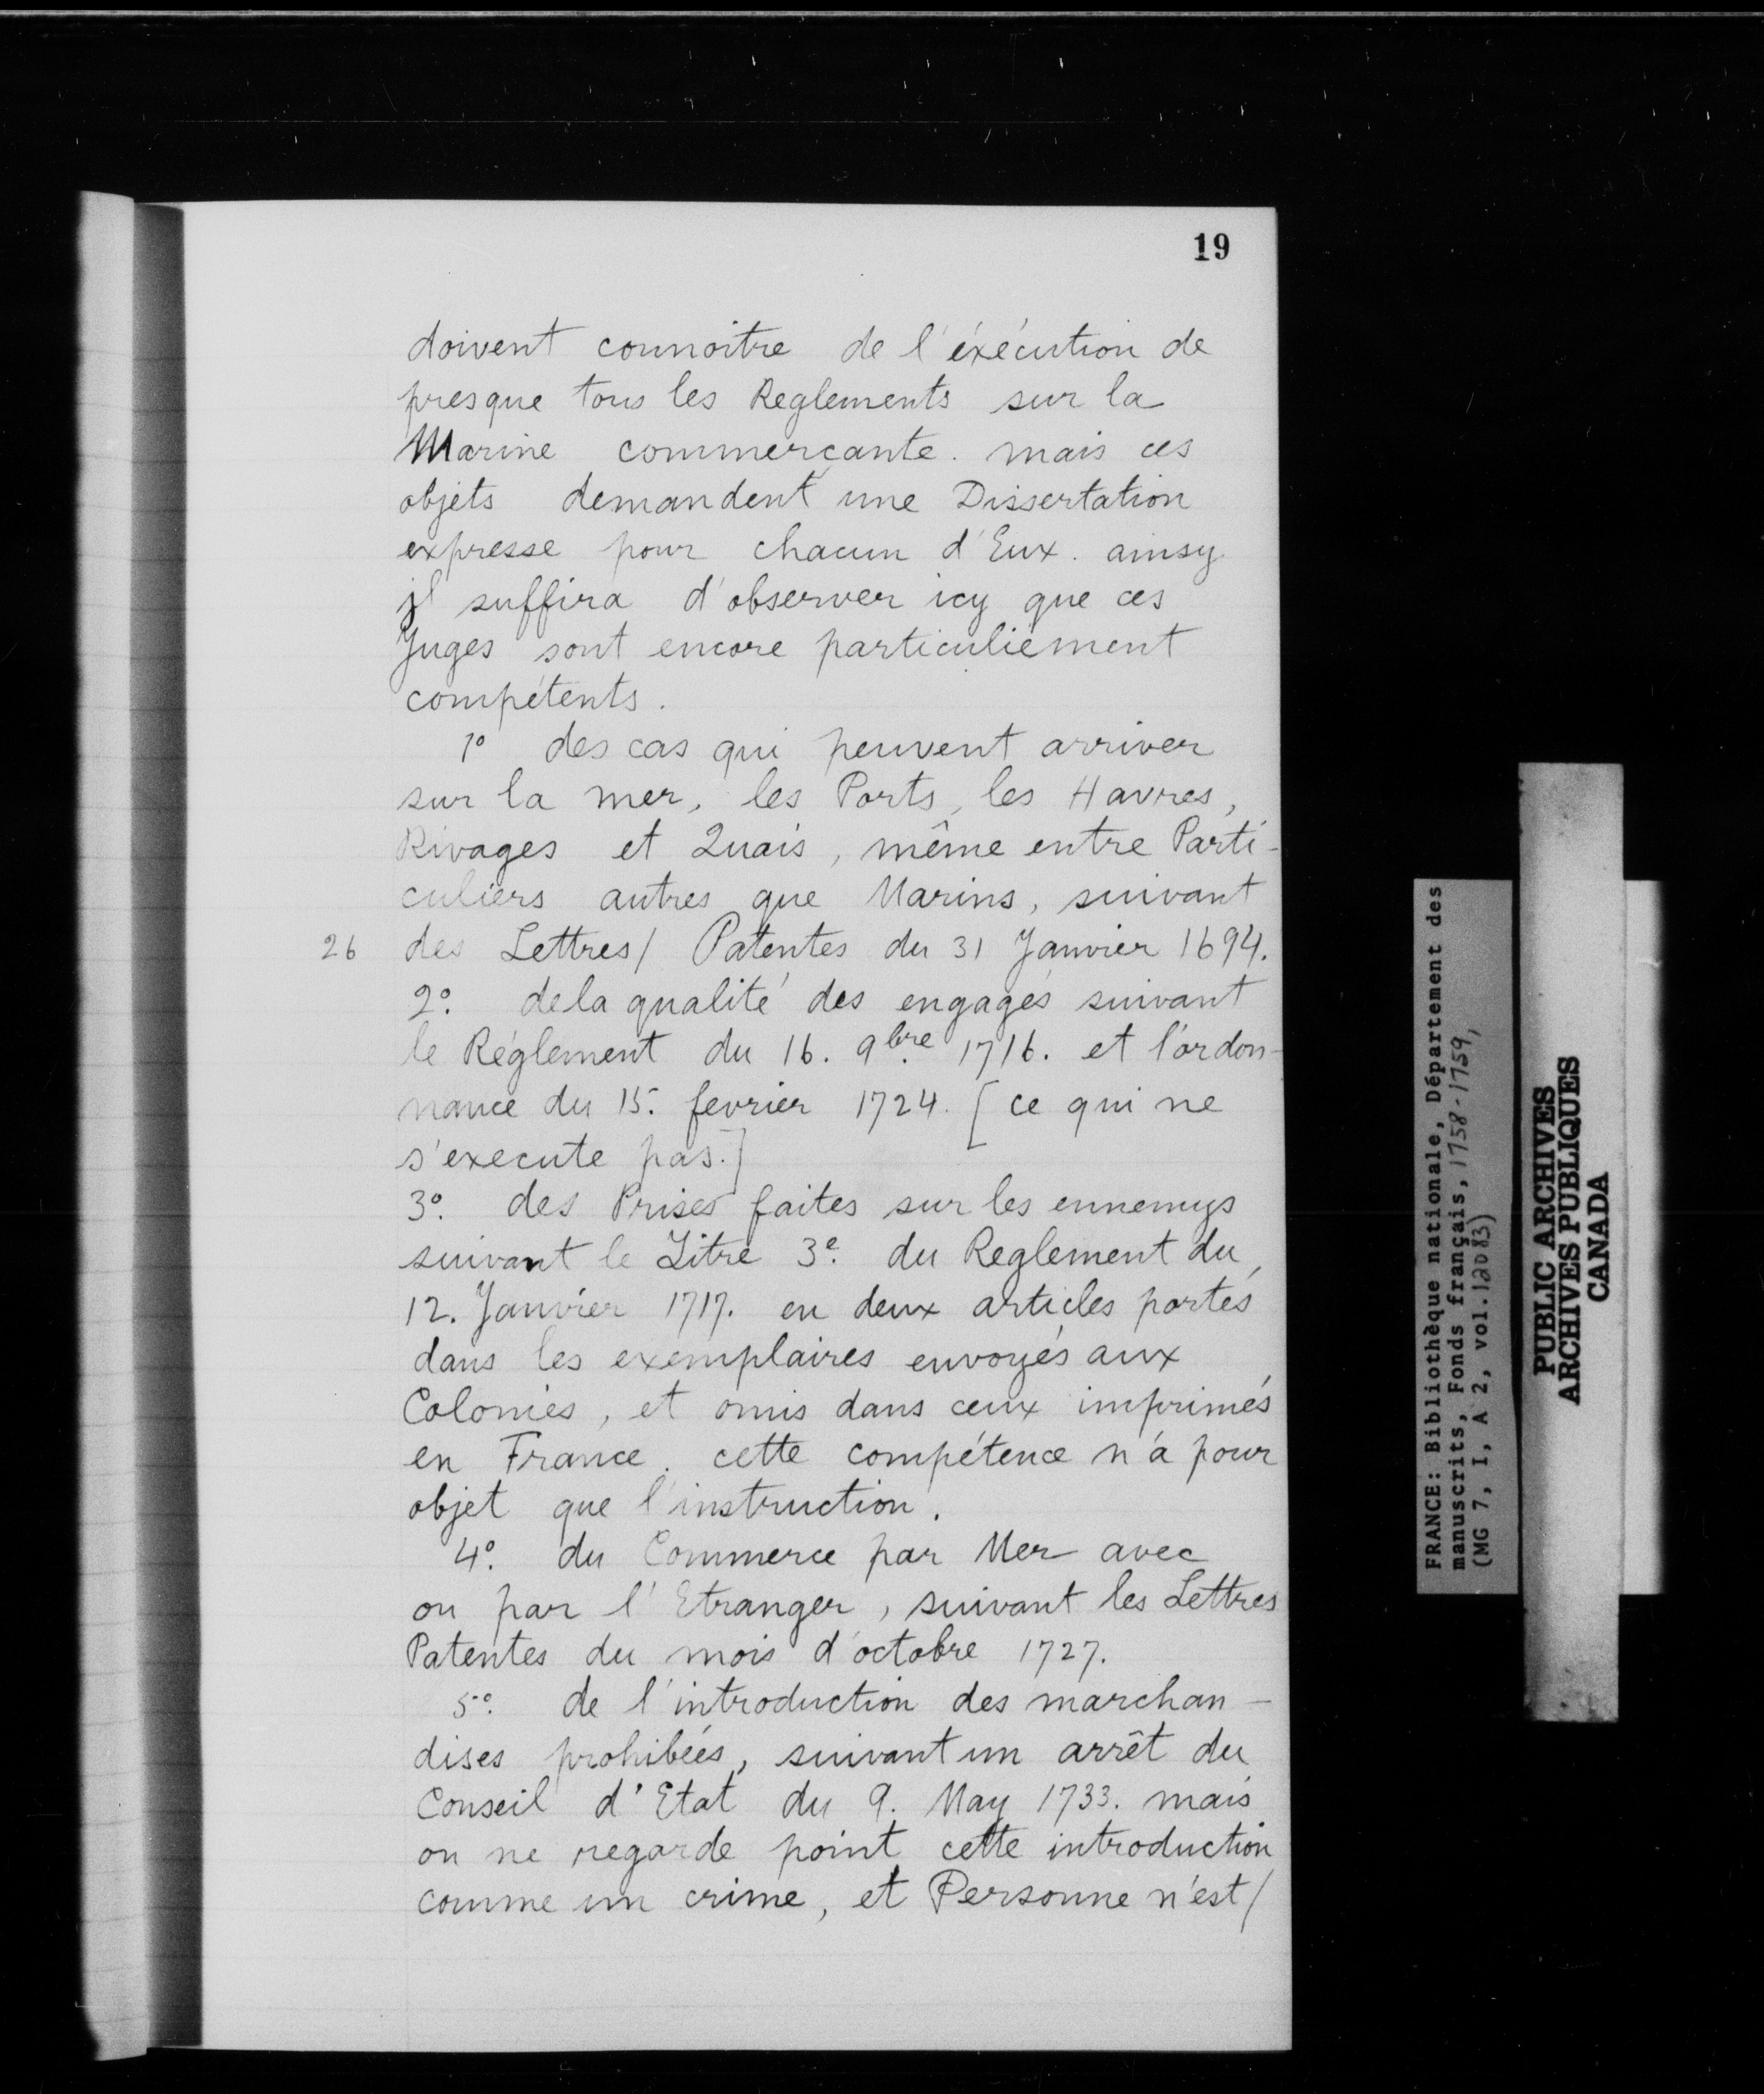 19
doivent connoitre de l'éxécution de
presque tous les Reglements sur la
Marine commerçante. mais ces
objets demandent une Dissertation
expresse pour chacun d'Eux. ainsy
jl suffira d'observer icy que ces
Juges sont encore particuliement
compétents.
1º des cas qui peuvent arriver
sur la mer, les Ports, les Havres,
Rivages et Quais, même entre Parti-
culiers autres que Marins, suivant
26 des Lettres/ Patentes du 31 Janvier 1694.
2º. dela qualité des engagés suivant
le Réglement du 16. 9bre. 1716. et l'ordon-
nance du 15. fevrier 1724. [ce qui ne
s'execute pas.]
3º. des Prises faites sur les ennemys
suivant le Titre 3e. du Reglement du
12. Janvier 1717. en deux articles portés
dans les exemplaires envoyés aux
Colonies, et omis dans ceux imprimés
en France. cette compétence n'a pour
objet que l'instruction.
4º. du Commerce par Mer avec
ou par l'Etranger, suivant les Lettres
Patentes du mois d'octobre 1727.
5º. de l'introduction des marchan-
dises prohibées, suivant un arrêt du
Conseil d'Etat du 9. May 1733. mais
on ne regarde point cette introduction
comme un crime, et Personne n'est/
FRANCE: Bibliothèque nationale, Département des
manuscrits, Fonds français, 1758-1759,
(MG 7, I, A 2, vol. 12083)
PUBLIC ARCHIVES
ARCHIVES PUBLIQUES
CANADA